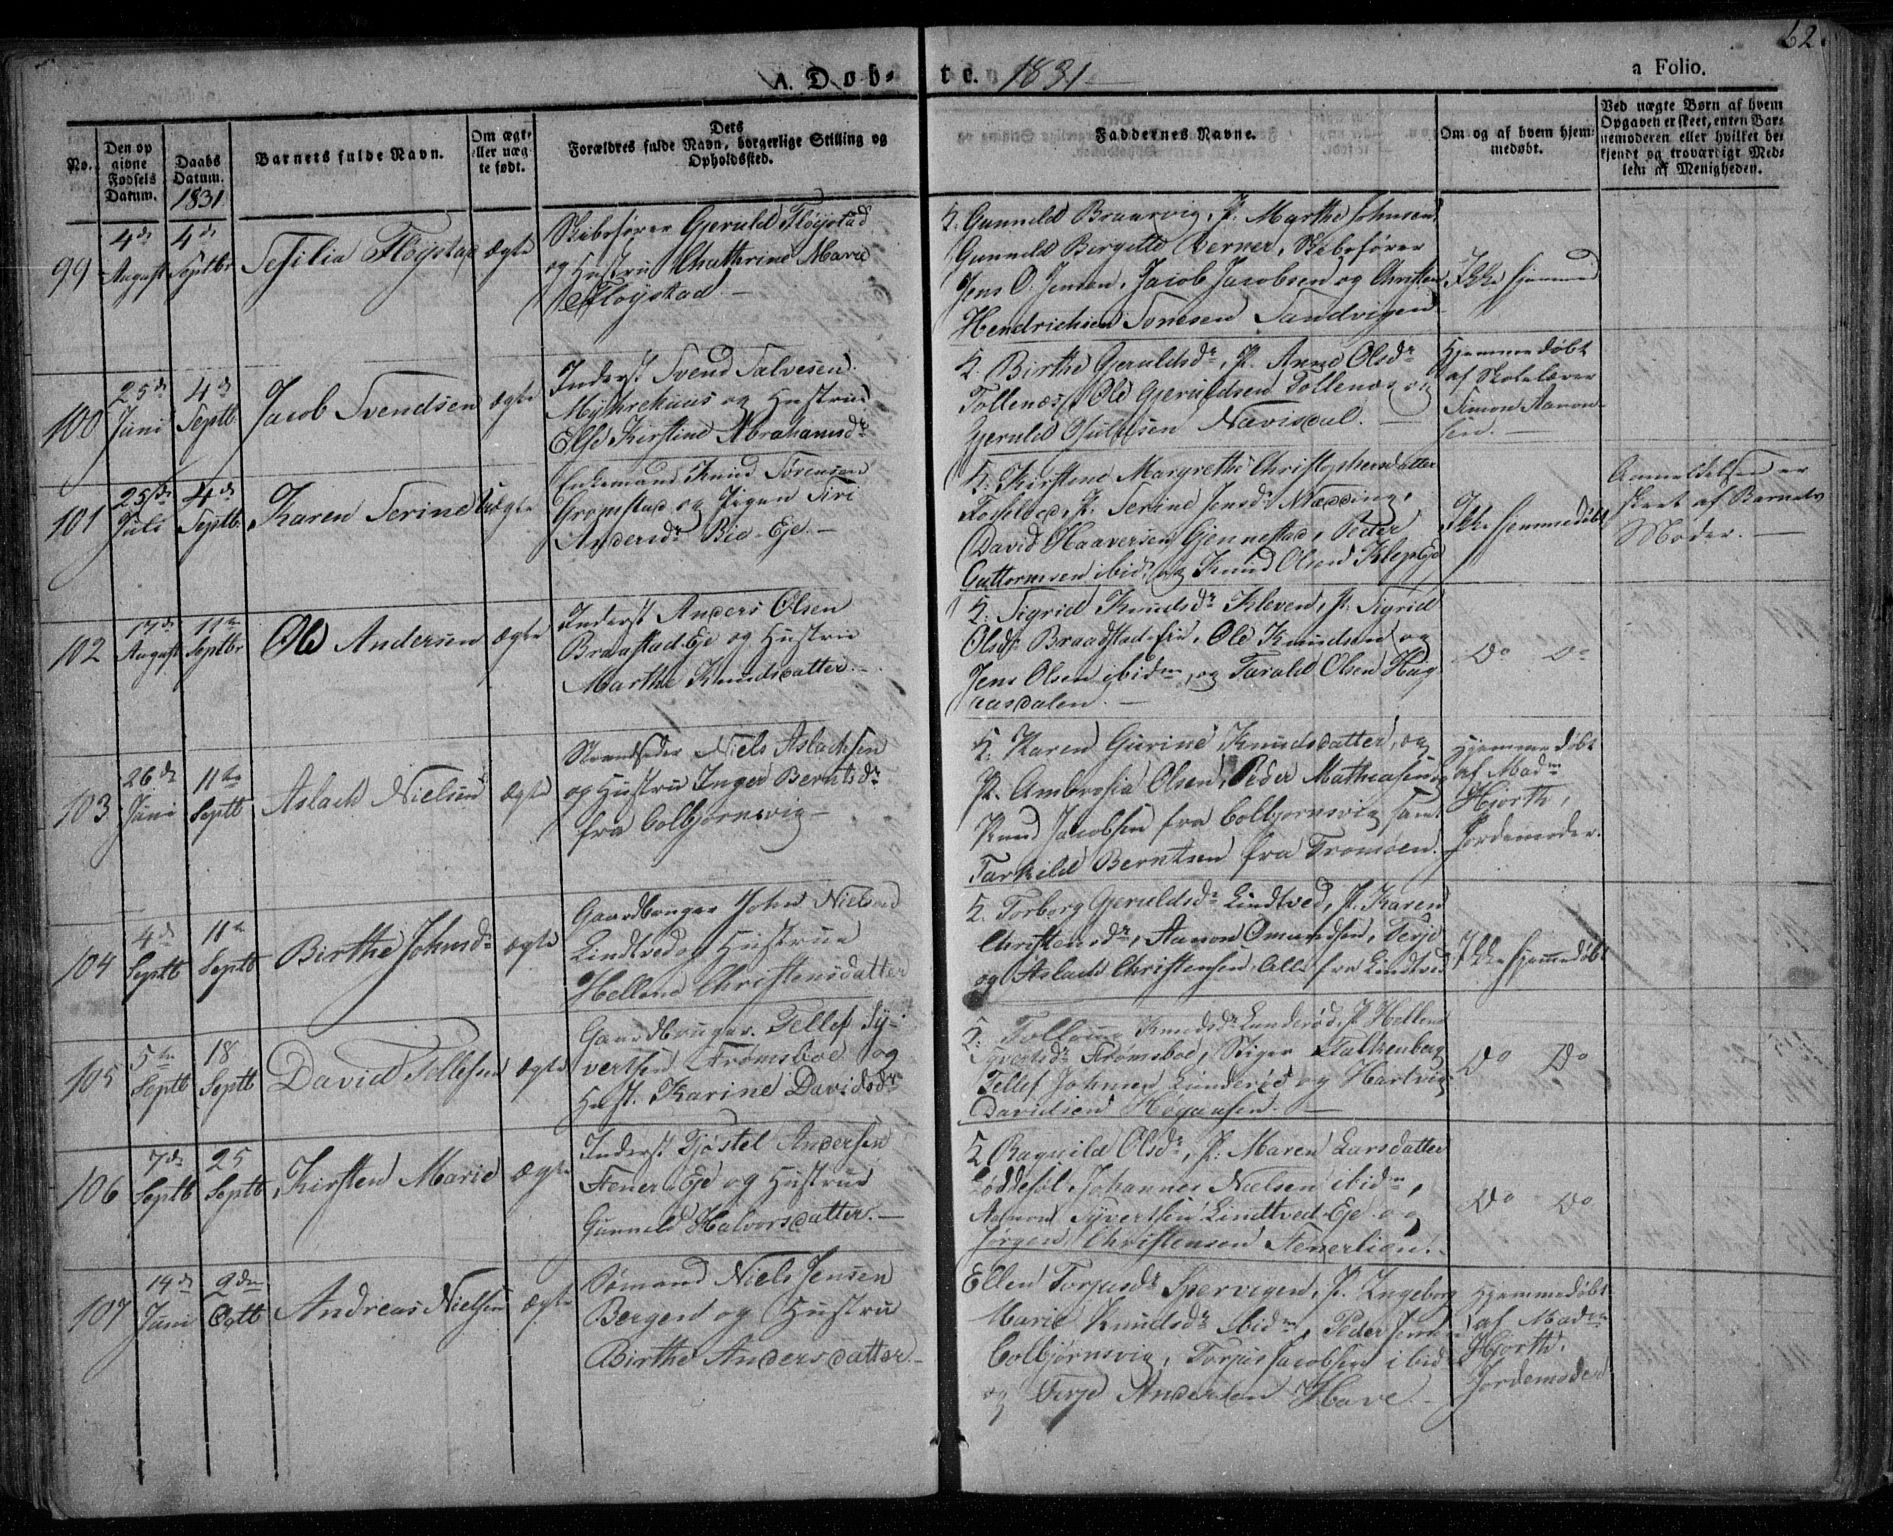 62.
A. Døb-
te. 1831
a Folio.
No.
Den op
givne
Fødsels
Datum.
Daabs
Datum.
1831
Barnets fulde Navn.
Om ægte
eller uæg
te født.
Dets
Forældres fulde Navn, borgerlige Stilling og
Opholdssted.
Faddernes Navne.
Om og af hvem hjem-
medøbt.
Ved uægte Børn af hvem
Opgaven er skeet, enten Bar-
nemoderen eller hvilket be-
kjendt og troværdigt Med-
lem af Menigheden.
99
4de
August
4de
Septbr
Sesilia Fløystad
ægte
Skibsfører Gjeruld Fløystad
og Hustrue Chathrine Marie
Fløystad.
Gunneld Braarvig, P. Marthe Johnsen,
Gunneld Bergette Werner, Skibsfører
Jens O. Jensen, Jacob Jacobsen og Christen
Hendrichsen Tonesen Sandvigen
Ikke hjemmed
100
25de
Juni
4de
Septb
Jacob Svendsen
ægte
Inderst Svend Salvesen
Myhrehuus og Hustrue
Else Kirstine Abrahamsdr
Birthe Gjeruldsdr, P. Anne Olsdr
Tollenæs, Ole Gjeruldsen Tollenæs og
Gjeruld Nævisdal.
Hjemmedøbt
af Skolelærer
Simon Aanon-
sen.
101
25de
Juli
4de
Septbr
Karen Serine
uægte
Enkemand Knud Sørensen
Gromstad og Pigen Siri
Andersdr Bie-Eje.
Kirstene Margrethe Christophersdatter
P. Serine Jensdr Nædding,
David Haaversen Gjennestad, Peder
Guttormsen ibid. og Knud Olsen Klep-Eje
Ikke hjemmedøbt
Anmeldelsen er
skeet af Barnets
Moder.
102
17de
August
11te
Septbr
Ole Andersen
ægte
Inderst Anders Olsen
Braastad-Eje og Hustrue
Marthe Knudsdatter.
Sigrid Knudsdr Kleven, P. Sigrid
Olsdr Braadstad-Eie, Ole Knudsen og
Jens Olsen ibidm, og Tarald Olsen Hög
aasdalen.
Do Do
103
26de
Juni
11te
Septb
Aslach Nielsen
ægte
Strandsidder Niels Aslachsen
og Hustrue Inger Berntsdr
fra Colbjørnsvig
Karen Gurine Knudsdatter, og
P. Ambrosia Olsen, Peder Mathiasen og
Knud Jacobsen fra Colbjornsvig samt
Tarkild Berntsen fra Tromøen.
Hjemmedøbt
af Madm
Hjorth,
Jordemoder.
104
4de
Septb
11te
Septb
Birthe Johnsdr
ægte
Gaardbruger John Nielsen
Lindtved og Hustrue
Hellene Christensdatter
Torborg Gjeruldsdr Lindtved, P. Karen
Christensdr, Aanon Omundsen, Terje
og Aslach Christensen, alle fra Lindtved
Ikke hjemmedøbt
105
5te
Septb
18
Septb
David Tellefsen
ægte
Gaardbruger Tellef Sy-
vertsen Frømsboe og
Hust. Karine Davidsdr
Knudsdr Lunderød, P. Hellene
Syvertsdr Frømsboe, Stiger Falkenberg
Tellef Johnsen Lunderød og Hartvig
Davidsen
Do Do
106
7de
Septb
25
Septb
Kirsten Marie
ægte
Inderst Tjøstel Andersen
Stener-Eje og Hustrue
Gunneld Halvorsdatter.
Ragnild Olsdr, P. Maren Larsdatter
Løddesøl, Johannes Nielsen ibidm,
Aanon Syvertsen Lindtved-Eje og
Jørgen Christensen
Do Do
107
14de
Juni
2den
Octb
Andreas Nielsen
ægte
Sømand Niels Jensen
Bergene og Hustrue
Birthe Andersdatter
Ellen Torjusdr Spervigen, P. Ingeborg
Marie Knudsdr ibidm, Peder
Colbjørnsvig, Torjus Jacobsen ibid
og Terje Andersen Have.
Hjemmedøbt
af Madm
Hjorth.
Jordemoder